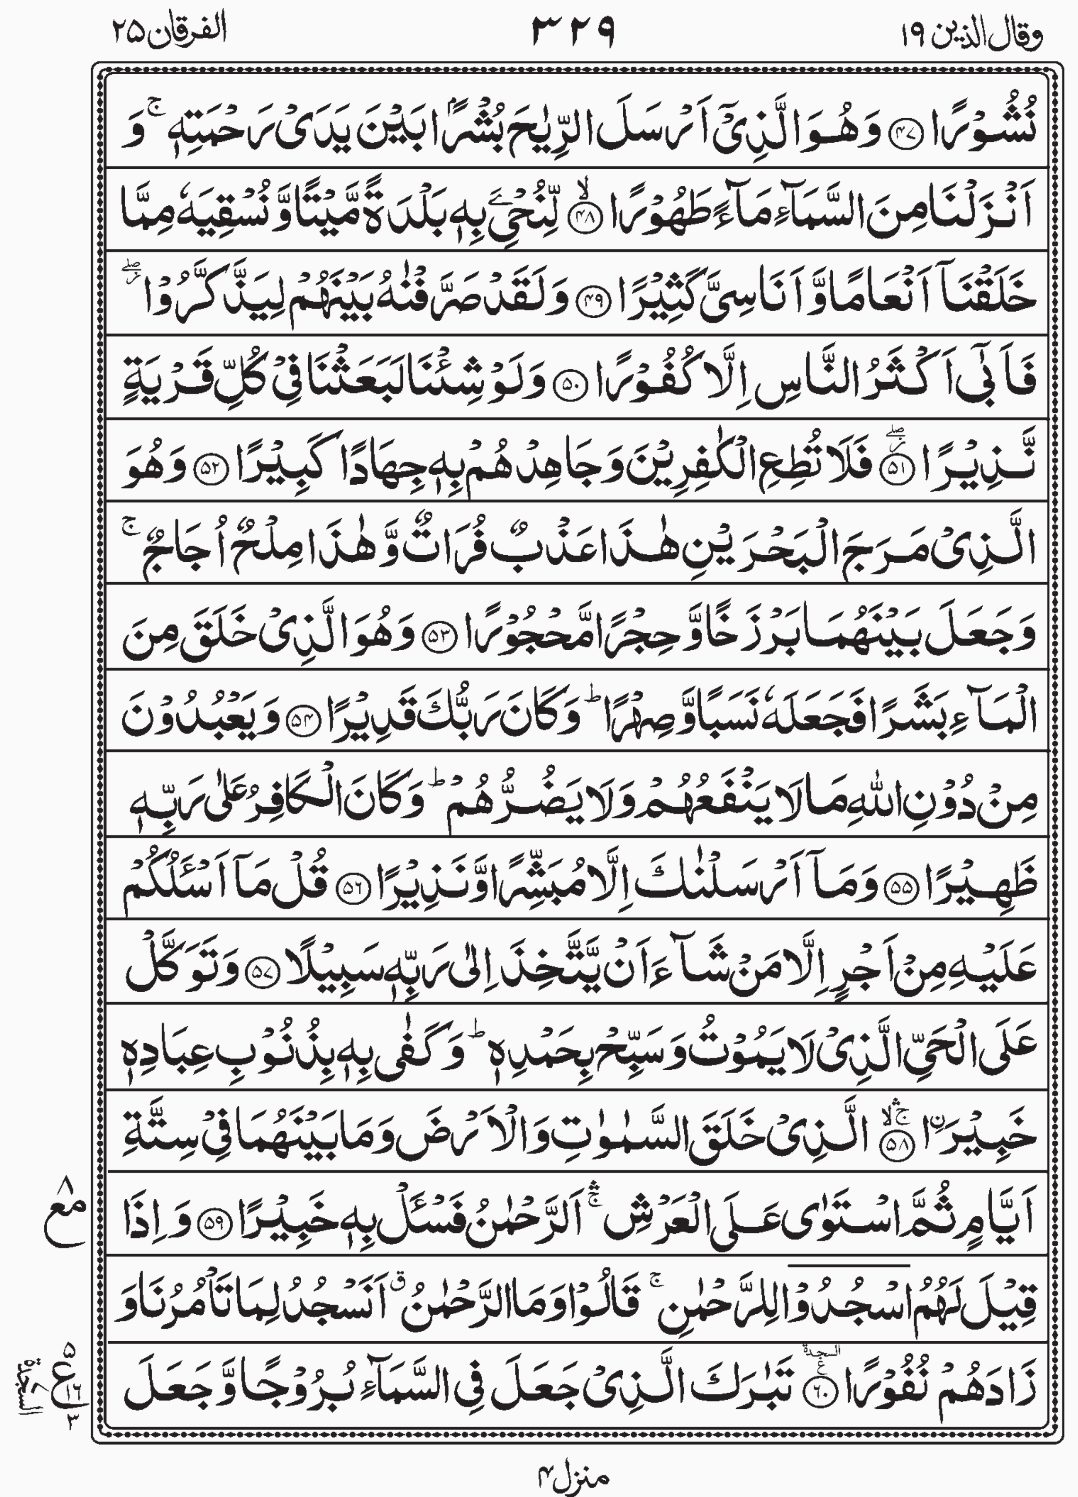 وقال الذين ١٩
٣٢٩
الفرقان ٢٥
نُشُوْرًا ﴿۴۷﴾ وَهُوَ الَّذِیْۤ اَرْسَلَ الرِّیٰحَ بُشْرًۢا بَیْنَ یَدَیْ رَحْمَتِهٖ ۚ وَ
اَنْزَلْنَا مِنَ السَّمَآءِ مَآءً طَهُوْرًا ﴿ۙ۴۸﴾ لِّنُحْیَِۧ بِهٖ بَلْدَةً مَّیْتًا وَّ نُسْقِیَهٗ مِمَّا
خَلَقْنَاۤ اَنْعَامًا وَّ اَنَاسِیَّ كَثِیْرًا ﴿۴۹﴾ وَ لَقَدْ صَرَّفْنٰهُ بَیْنَهُمْ لِیَذَّكَّرُوْا ؗۖ
فَاَبٰۤی اَكْثَرُ النَّاسِ اِلَّا كُفُوْرًا ﴿۵۰﴾ وَ لَوْ شِئْنَا لَبَعَثْنَا فِیْ كُلِّ قَرْیَةٍ
نَّذِیْرًا ﴿ؗۖ۵۱﴾ فَلَا تُطِعِ الْكٰفِرِیْنَ وَ جَاهِدْهُمْ بِهٖ جِهَادًا كَبِیْرًا ﴿۵۲﴾ وَ هُوَ
الَّذِیْ مَرَجَ الْبَحْرَیْنِ هٰذَا عَذْبٌ فُرَاتٌ وَّ هٰذَا مِلْحٌ اُجَاجٌ ۚ
وَ جَعَلَ بَیْنَهُمَا بَرْزَخًا وَّ حِجْرًا مَّحْجُوْرًا ﴿۵۳﴾ وَ هُوَ الَّذِیْ خَلَقَ مِنَ
الْمَآءِ بَشَرًا فَجَعَلَهٗ نَسَبًا وَّ صِهْرًا ؕ وَ كَانَ رَبُّكَ قَدِیْرًا ﴿۵۴﴾ وَ یَعْبُدُوْنَ
مِنْ دُوْنِ اللّٰهِ مَا لَا یَنْفَعُهُمْ وَ لَا یَضُرُّهُمْ ؕ وَ كَانَ الْكَافِرُ عَلٰی رَبِّهٖ
ظَهِیْرًا ﴿۵۵﴾ وَ مَاۤ اَرْسَلْنٰكَ اِلَّا مُبَشِّرًا وَّ نَذِیْرًا ﴿۵۶﴾ قُلْ مَاۤ اَسْـَٔلُكُمْ
عَلَیْهِ مِنْ اَجْرٍ اِلَّا مَنْ شَآءَ اَنْ یَّتَّخِذَ اِلٰی رَبِّهٖ سَبِیْلًا ﴿۵۷﴾ وَ تَوَكَّلْ
عَلَی الْحَیِّ الَّذِیْ لَا یَمُوْتُ وَ سَبِّحْ بِحَمْدِهٖ ؕ وَ كَفٰی بِهٖ بِذُنُوْبِ عِبَادِهٖ
خَبِیْرَاۨ ﴿ۚۛۙ۵۸﴾ الَّذِیْ خَلَقَ السَّمٰوٰتِ وَ الْاَرْضَ وَ مَا بَیْنَهُمَا فِیْ سِتَّةِ
اَیَّامٍ ثُمَّ اسْتَوٰی عَلَی الْعَرْشِ ۛۚ اَلرَّحْمٰنُ فَسْـَٔلْ بِهٖ خَبِیْرًا ﴿۵۹﴾ وَ اِذَا
مع ٨
قِیْلَ لَهُمُ اسْجُدُوْا لِلرَّحْمٰنِ ۚ قَالُوْا وَ مَا الرَّحْمٰنُ ۗ اَنَسْجُدُ لِمَا تَاْمُرُنَا وَ
زَادَهُمْ نُفُوْرًا ﴿۶۰﴾ السجدة ع تَبٰرَكَ الَّذِیْ جَعَلَ فِی السَّمَآءِ بُرُوْجًا وَّ جَعَلَ
٥ ع ١٦ ٣
السجدة ٧
منزل ۴